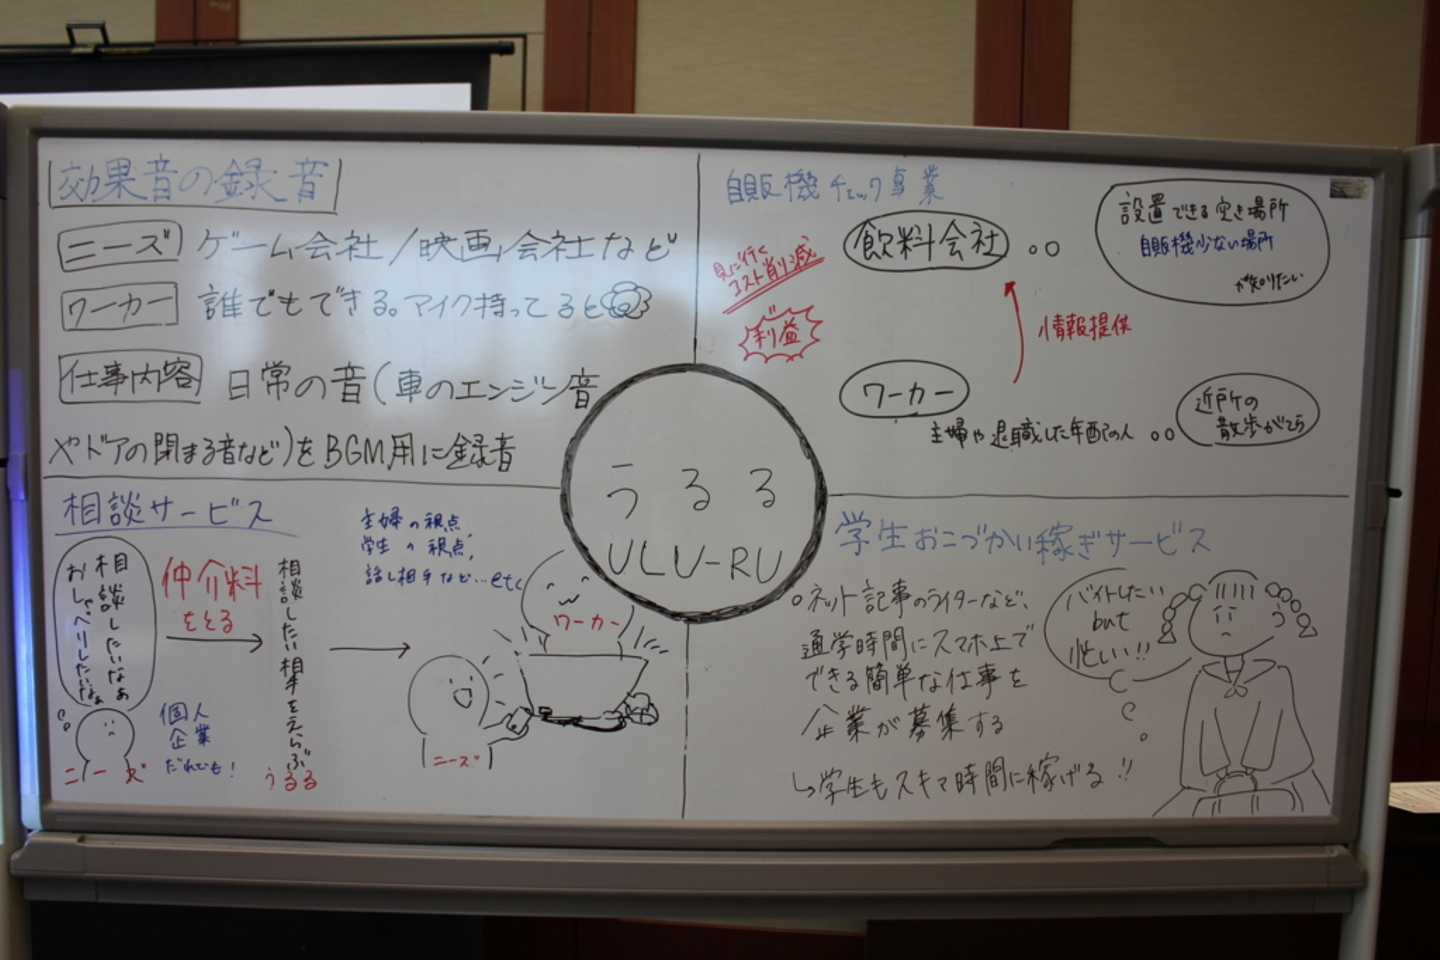 効果音の録音
ニーズ ゲーム会社/映画会社など
ワーカー 誰でもできる。マイク持ってると
仕事内容 日常の音(車のエンジン音
やドアの閉まる音など)をBGM用に録音
自販機チェック事業
飲料会社
設置できる空き場所
自販機少ない場所
が知りたい
見に行く
コスト削減
利益
情報提供
ワーカー
主婦や退職した年配の人
近所の
散歩がてら
うるる
ULU-RU
相談サービス
相談したいなぁ
おしゃべりしたいなぁ
ニーズ
仲介料
をとる
個人
企業
だれでも!
相談したい相手をえらぶ
うるる
主婦の視点,
学生の視点,
話し相手など…etc
ワーカー
ニーズ
学生おこづかい稼ぎサービス
○ネット記事のライターなど、
通学時間にスマホ上で
できる簡単な仕事を
企業が募集する
↳学生もスキマ時間に稼げる!!
バイトしたい
but
忙しい!!